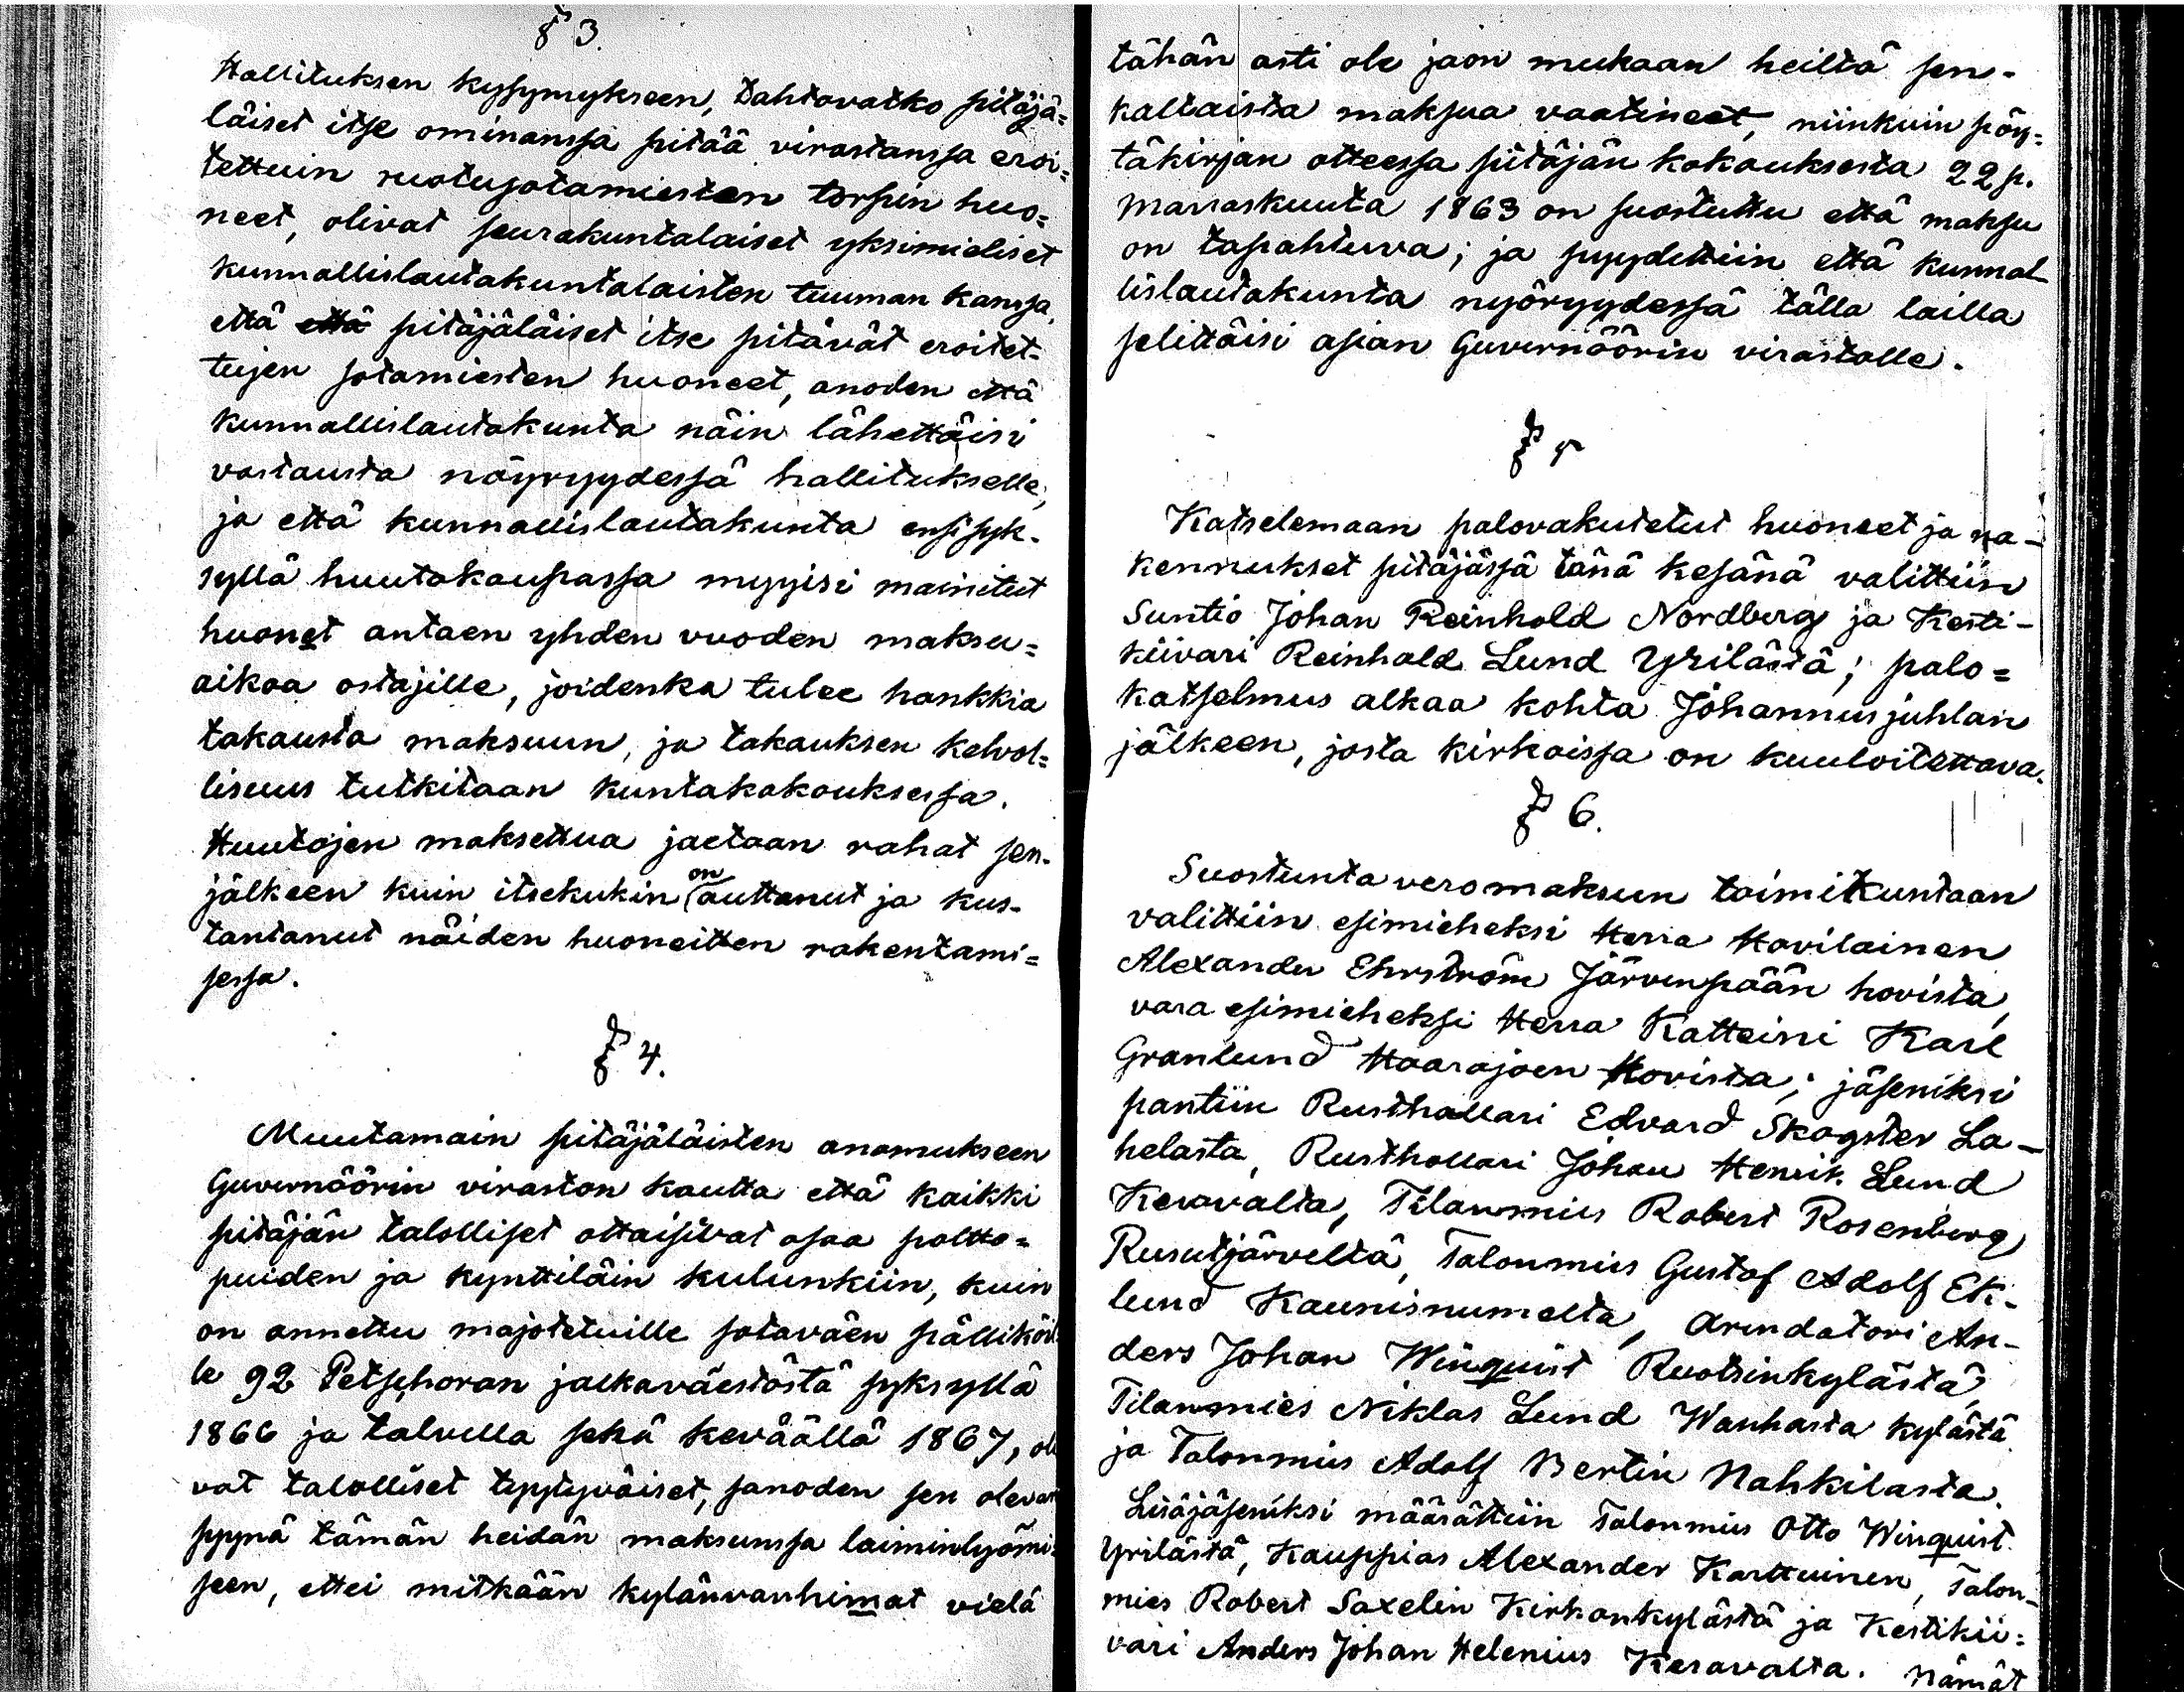 § 3.
Hallituksen kysymykseen, tahtovatko pitäjä=
läiset itse ominansa pitää virastansa eroi=
tettuin ruotusotamiesten torpin huo=
neet, olivat seurakuntalaiset yksimieliset
kunnallislautakuntalaisten tuuman kanssa,
että että pitäjäläiset itse pitävät eroitet=
tujen sotamiesten huoneet, anoden että
kunnallislautakunta näin lähettäisi
vastausta nöyryydessä hallitukselle,
ja että kunnallislautakunta ensi syk-
syllä huutokaupassa myyisi mainitut
huonet antaen yhden vuoden maksu=
aikaa ostajille, joidenka tulee hankkia
takausta maksuun, ja takauksen kelvol=
lisuus tutkitaan kuntakokouksessa.
Huutojen maksettua jaetaan rahat sen-
jälkeen kuin itsekukin on auttanut ja kus-
tantanut näiden huoneitten rakentami=
sessa.
§ 4.
Muutamain pitäjäläisten anomukseen
Guvernöörin viraston kautta että kaikki
pitäjän talolliset ottaisivat osaa poltto=
puiden ja kynttiläin kulunkiin, kuin
on annettu majoitetuille sotaväen pälliköil
le 92 Petschoran jalkaväestöstä syksyllä
1866 ja talvella sekä keväällä 1867, oli
vat talolliset tyytyväiset, sanoden sen olevan
syynä tämän heidän maksunsa laiminlyömi=
seen, ettei mitkään kylänvanhimat vielä
tähän asti ole jaon mukaan heiltä sen-
kaltaista maksua vaatineet, niinkuin pöy=
täkirjan otteessa pitäjän kokouksesta 22 p.
Marraskuuta 1863 on suostuttu että maksu
on tapahtuva; ja pyydettiin että kunnal
lislautakunta nyöryydessä tällä lailla
selittäisi asian Guvernöörin virastolle.
§ 5
Katselemaan palovakutetut huoneet ja ra-
kennukset pitäjässä tänä kesänä valittiin
Suntio Johan Reinhold Nordberg ja Kesti-
kiivari Reinhold Lund Yrilästä; palo=
katselmus alkaa kohta Johannusjuhlan
jälkeen, josta kirkoissa on kuuloitettava.
§ 6.
Suostuntaveromaksun toimitkuntaan
valittiin esimieheksi Herra Hovilainen
Alexander Ehrström Järvenpään hovista,
vara esimieheksi Herra Katteini Karl
Granlund Haarajoen Hovista; jäseniksi
pantiin Rusthollari Edvard Skogster La-
helasta, Rusthollari Johan Henrik Lund
Keravalta, Tilanmies Robert Rosenberg
Rusutjärveltä, Talonmies Gustaf Adolf Ek-
lund Kaunisnumelta, Arendatori An-
ders Johan Winquist Ruotsinkylästä,
Tilanmies Niklas Lund Wanhasta kylästä
ja Talonmies Adolf Bertin Nahkilasta.
Lisäjäseniksi määrättiin Talonmies Otto Winquist
Yrilästä, Kauppias Alexander Karttuinen, Talon-
mies Robert Saxelin Kirkonkylästä ja Kestikii=
vari Anders Johan Helenius Keravalta. Nämät